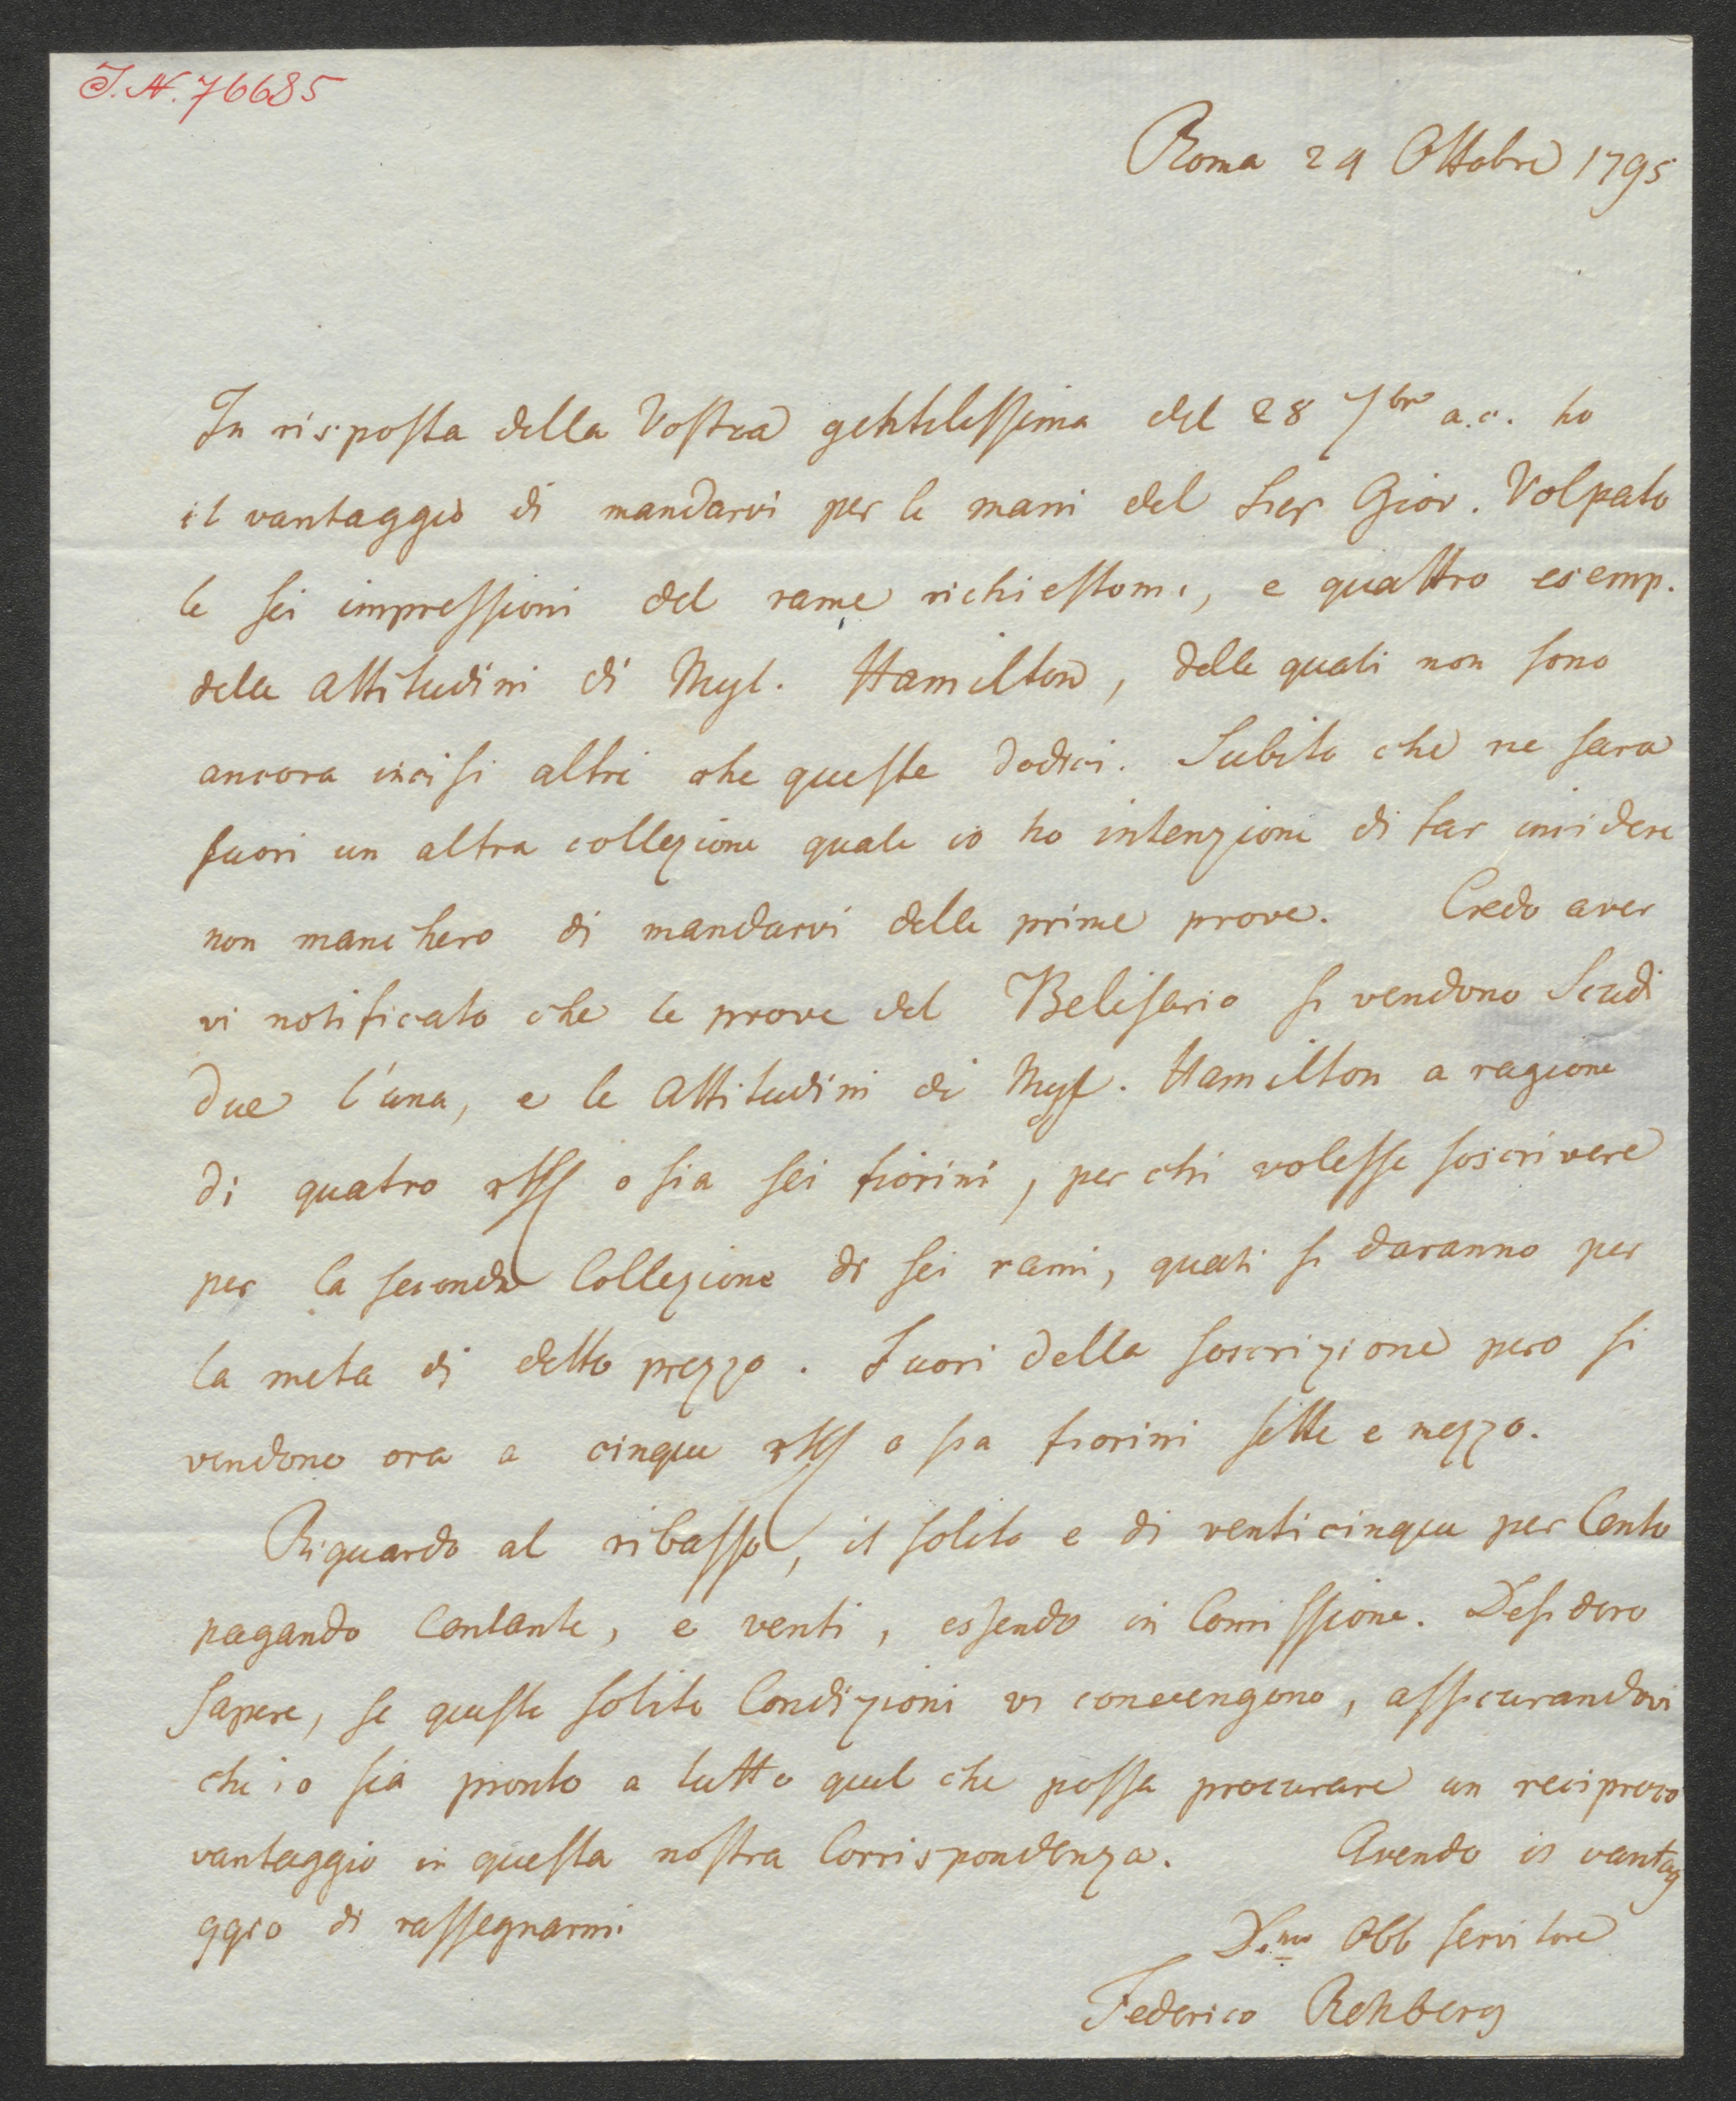 I.N. 76685
Roma 29 Ottobre 1795
In risposta della Vostra gentilessima del 28 7bre a.c. ho
il vantaggio di mandarvi per le mani del Sigr Giov. Volpato
le sei impressioni del rame richiestomi, e quattro esemp.
dele attitudini di Myl. Hamilton, delle quali non sono
ancora incisi altri che queste dodici. Subito che ne sara
fuori un altra collezione quale io ho intenzione di far incidere
non manchero di mandarvi delle prime prove. Credo aver
vi notificato che le prove del Belisario si vendono Scudi
due l'una, e le attitudini di Myl. Hamilton a ragione
di quatro o sia sei fiorini, per chi volesse soscrivere
per la seconda Collezione di sei rami, quali si daranno per
la meta di detto prezzo. Fuori della soscrizione pero si
vendono ora a cinque o sia fiorini sette e mezzo.
Riguardo al ribasso, il solito e di venticinque per Cento
pagando Contante, e venti, essendo in Comissione. Desidero
sapere, se queste solite Condizioni vi convengono, assicurandovi
ch io sia pronto a tutto quel che possa procurare un reciproco
vantaggio in questa nostra Corrispondenza. Avendo il vantag
ggio di rassegnarmi
D.mo Obb servitore
Federico Rehberg